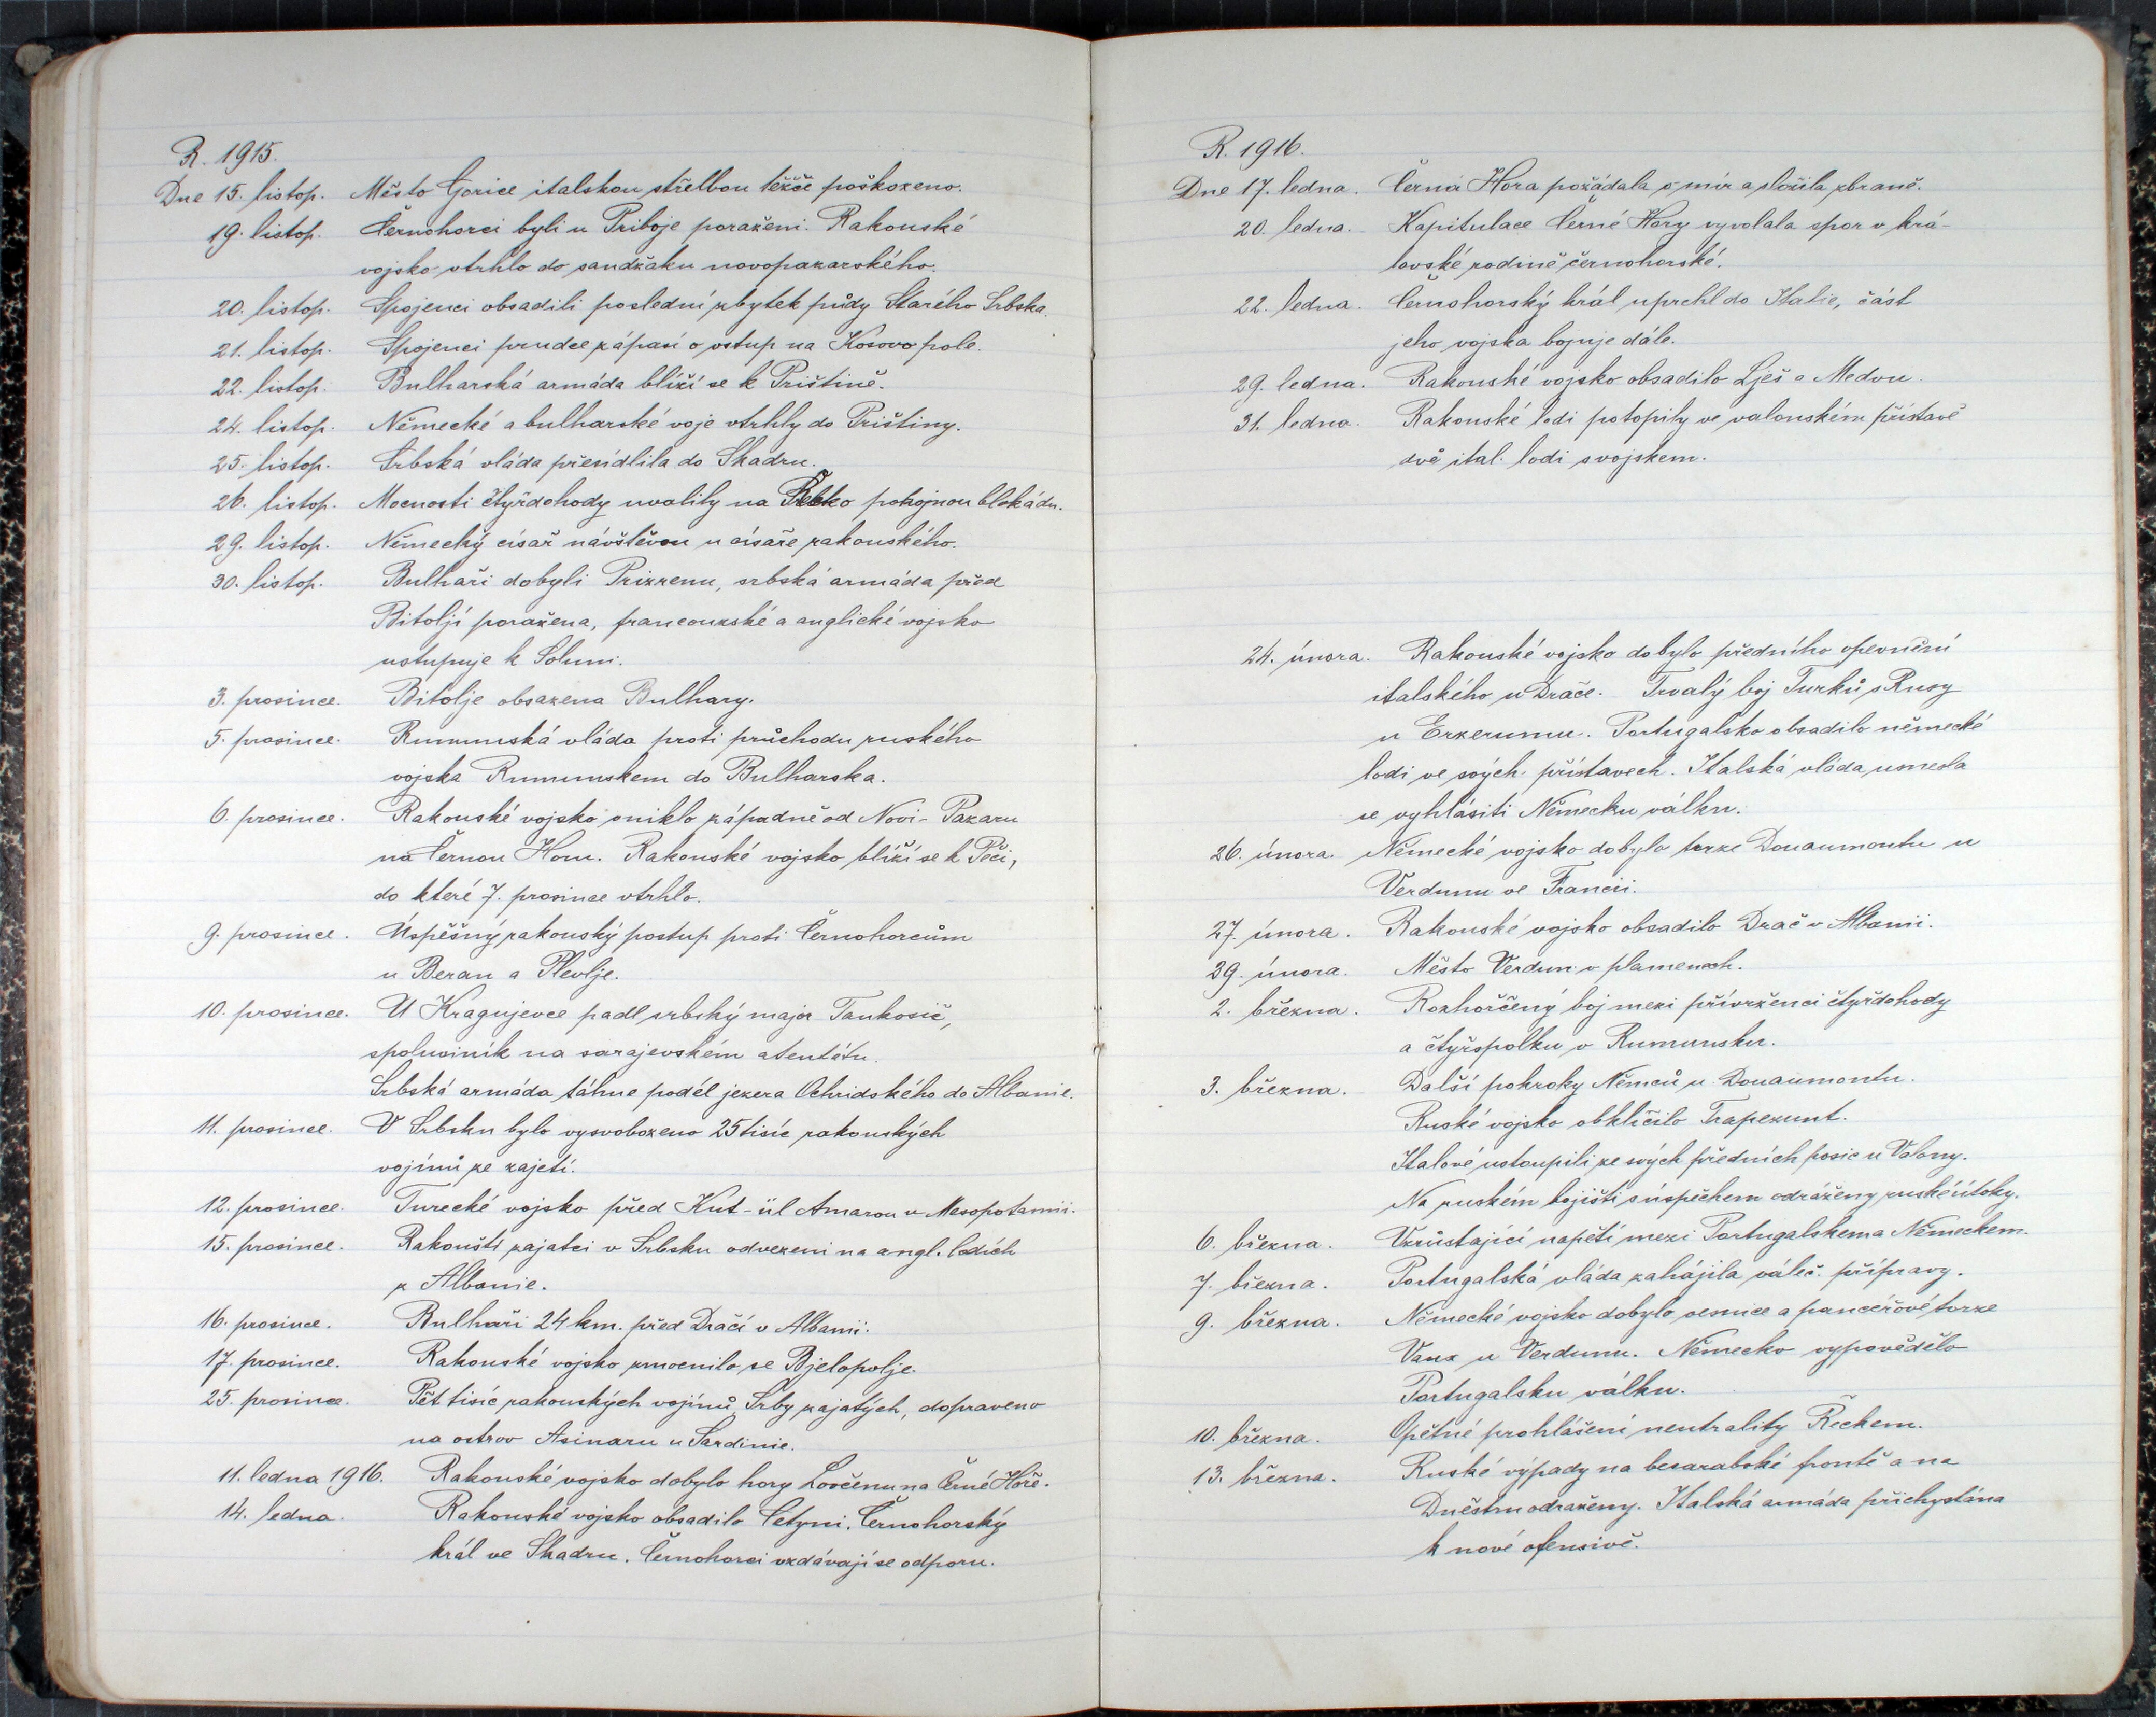 R. 1915.
Dne 15. listop. Město Gorice italskou střelbou těžce poškozeno.
19. listop. Černohorci byli u Priboje poraženi. Rakouské
vojsko vtrhlo do sandžaku novopazarského.
20. listop. Spojenci obsadili poslední zbytek půdy Starého Srbska.
21. listop. Spojenci prudce zápasí o vstup na Kosovo pole.
22. listop. Bulharská armáda blíží se k Prištině.
24. listop. Německé a bulharské voje vtrhly do Prištiny.
25. listop. Srbská vláda přesídlila do Skadru.
26. listop. Mocnosti čtyřdohody uvalily na Řecko pokojnou blokádu.
29. listop. Německý císař návštěvou u císaře rakouského.
30. listop. Bulhaři dobyli Prizrenu, srbská armáda před
Bitoljí poražena, francouzské a anglické vojsko
ustupuje k Soluni.
3. prosince. Bitolje obsazena Bulhary.
5. prosince. Rumunská vláda proti průchodu ruského
vojska Rumunskem do Bulharska.
6. prosince. Rakouské vojsko vniklo západně od Novi-Pazaru
na Černou Horu. Rakouské vojsko blíží se k Peči,
do které 7. prosince vtrhlo.
9. prosince. Úspěšný rakouský postup proti Černohorcům
u Beran a Plevlje.
10. prosince. U Kragujevce padl srbský major Tankosič,
spoluviník na sarajevském atentátu.
Srbská armáda táhne podél jezera Ochridského do Albanie.
11. prosince. V Srbsku bylo vysvobozeno 25 tisíc rakouských
vojínů ze zajetí.
12. prosince. Turecké vojsko před Kut-ül Amarou v Mesopotamii.
15. prosince. Rakouští zajatci v Srbsku odvezeni na angl. lodích
z Albanie.
16. prosince. Bulhaři 24 km. před Dračí v Albanii.
17. prosince. Rakouské vojsko zmocnilo se Bjelopolje.
25. prosince. Pět tisíc rakouských vojínů Srby zajatých, dopraveno
na ostrov Asinaru u Sardinie.
11. ledna 1916. Rakouské vojsko dobylo hory Lovčenu na Černé Hoře.
14. ledna. Rakouské vojsko obsadilo Cetyni. Černohorský
král ve Skadru. Černohorci vzdávají se odporu.
R. 1916.
Dne 17. ledna. Černá Hora požádala o mír a složila zbraně.
20. ledna. Kapitulace Černé Hory vyvolala spor v krá-
lovské rodině černohorské.
22. ledna. Černohorský král uprchl do Italie, část
jeho vojska bojuje dále.
29. ledna. Rakouské vojsko obsadilo Lješ a Medvu.
31. ledna. Rakouské lodi potopily ve valonském přístavě
dvě ital. lodi s vojskem.
24. února. Rakouské vojsko dobylo předního opevnění
italského u Drače. Trvalý boj Turků s Rusy
u Erzerumu. Portugalsko obsadilo německé
lodi ve svých přístavech. Italská vláda usnesla
se vyhlásiti Německu válku.
26. února. Německé vojsko dobylo tvrze Douaumontu u
Verdunu ve Francii.
27. února. Rakouské vojsko obsadilo Drač v Albanii.
29. února. Město Verdun v plamenech.
2. března. Rozhořčený boj mezi přívrženci čtyřdohody
a čtyřspolku v Rumunsku.
3. března. Další pokroky Němců u Douaumontu.
Ruské vojsko obklíčilo Trapezunt.
Italové ustoupili ze svých předních posic u Valony.
Na ruském bojišti s úspěchem odráženy ruské útoky.
6. března. Vzrůstající napětí mezi Portugalskem a Německem.
7. března. Portugalská vláda zahájila váleč. přípravy.
9. března. Německé vojsko dobylo vesnice a pancéřové tvrze
Vaux u Verdunu. Německo vypovědělo
Portugalsku válku.
10. března. Opětné prohlášení neutrality Řeckem.
13. března. Ruské výpady na besarabské frontě a na
Dněstru odraženy. Italská armáda přichystána
k nové ofensivě.